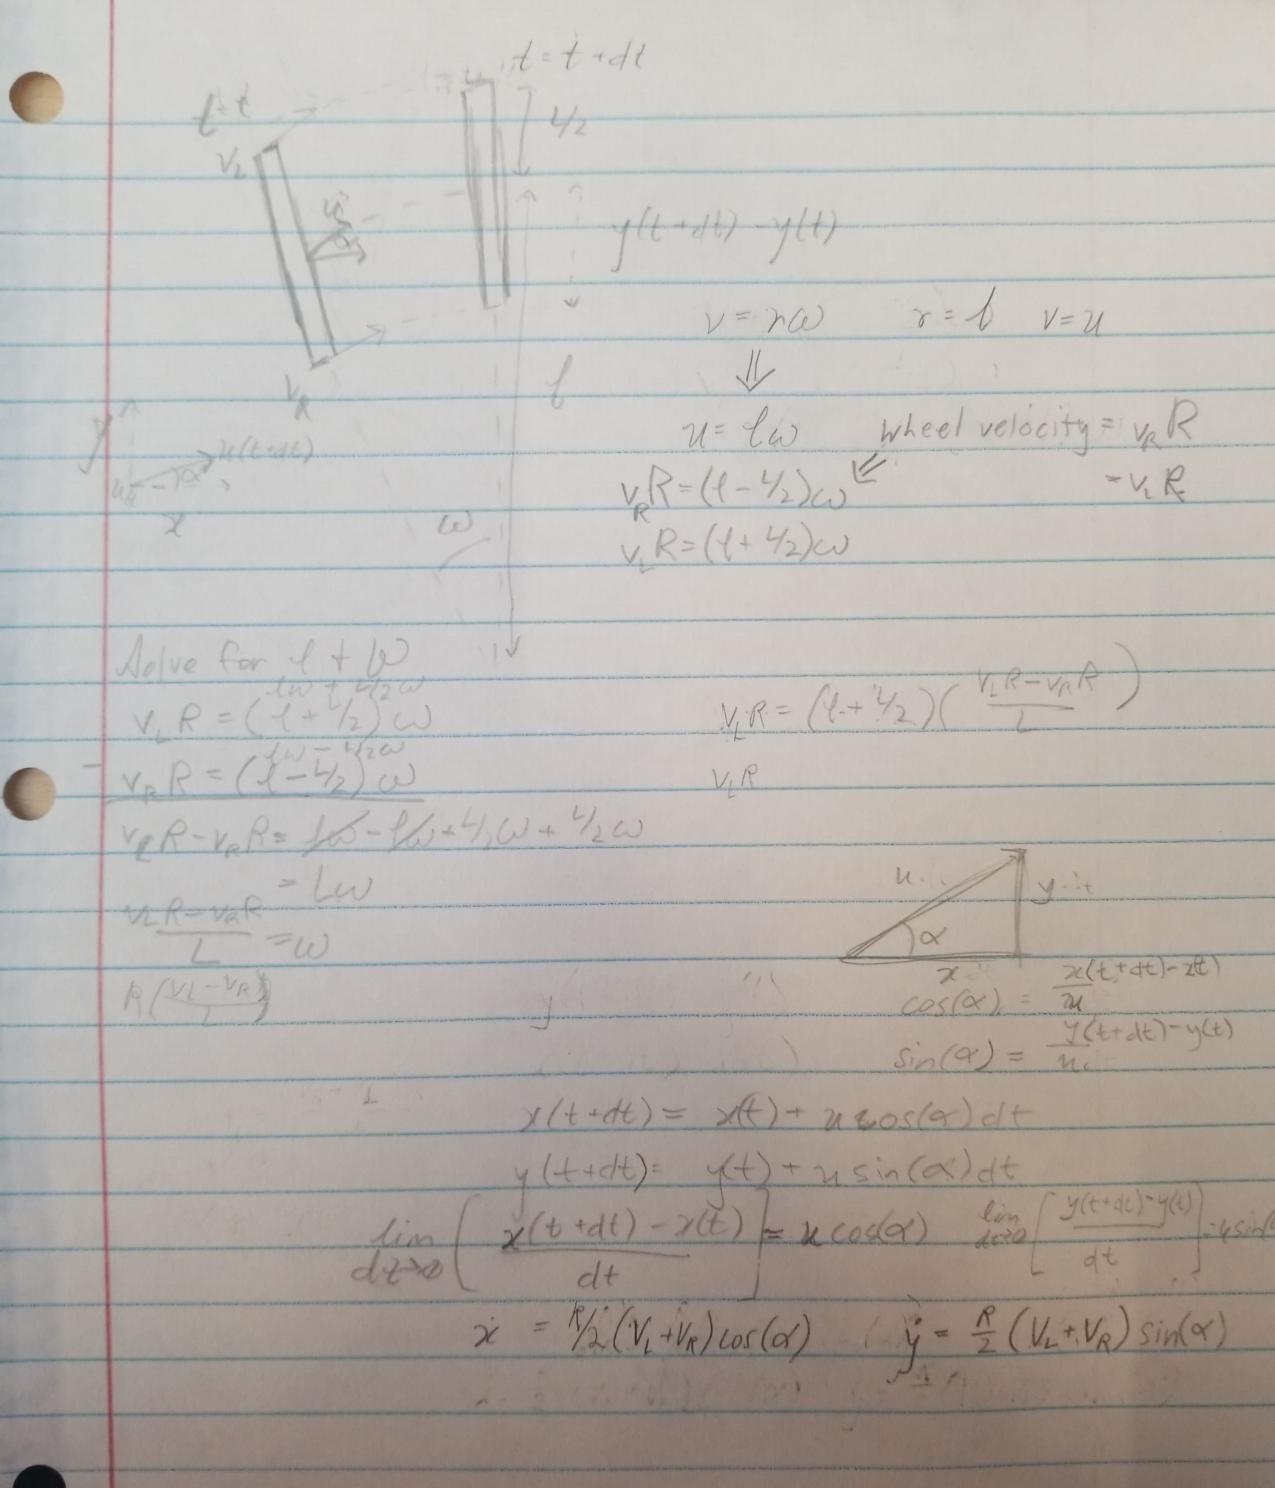 t = t + dt
t=t
L/2
V_L
y(t+dt) - y(t)
v = rω r = l v = u
⇓
V_R
l
y
u(t+dt)
α
x
u = lω wheel velocity = v_R R
v_R R = (l - L/2)ω ⇐ = v_L R
ω
v_L R = (l + L/2)ω
Solve for l + ω
lω + L/2ω
v_L R = (l + L/2)ω
lω - L/2ω
- v_R R = (l - L/2)ω
v_L R - v_R R = lω - lω + L/2ω + L/2ω
= Lω
(v_L R - v_R R)/L = ω
R((v_L - v_R)/L)
v_L R = (l + L/2)((v_L R - v_R R)/L)
v_L R
u
y
α
x
cos(α) = (x(t+dt) - x(t))/u
sin(α) = (y(t+dt) - y(t))/u
x(t+dt) = x(t) + u cos(α) dt
y(t+dt) = y(t) + u sin(α) dt
lim dt→0 [(x(t+dt) - x(t))/dt] = u cos(α) lim dt→0 [(y(t+dt) - y(t))/dt] = u sin(
ẋ = R/2 (V_L + V_R) cos(α) ẏ = R/2 (V_L + V_R) sin(α)